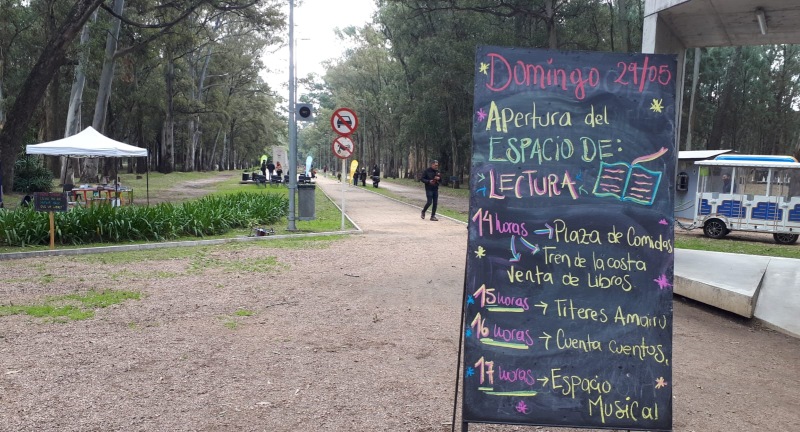 Domingo 29/05
Apertura del
ESPACIO DE:
LECTURA
14 horas → Plaza de Comidas
Tren de la costa
Venta de Libros
15 horas → Titeres Amairu
16 horas → Cuenta cuentos.
17 horas → Espacio
Musical